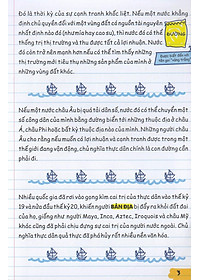 Đó là thời kỳ của sự cạnh tranh khốc liệt. Nếu một nước khẳng
định chủ quyền đối với một vùng đất có nguồn tài nguyên
nhất định nào đó (như mía hay cao su), thì nước đó có thể
thống trị thị trường và thu được tất cả lợi nhuận. Nước
đó còn trở nên mạnh hơn nếu có thể tìm thấy những
thị trường mới tiêu thụ những sản phẩm của mình ở
những vùng đất khác.
ĐƯỜNG
Nếu một nước châu Âu bị quá tải dân số, nước đó có thể chuyển một
số công dân của mình bằng đường biển tới những thuộc địa ở châu
Á, châu Phi hoặc bất kỳ thuộc địa nào của mình. Những người châu
Âu cho rằng nếu muốn có lợi nhuận và cạnh tranh được trong một
thế giới đang vận động, chủ nghĩa thực dân chính là con đường cần
phải đi.
Nhiều quốc gia đã rơi vào gọng kìm cai trị của thực dân vào thế kỷ
19 và nửa đầu thế kỷ 20, khiến người BẢN ĐỊA bị đẩy ra khỏi đất đai
của họ, giống như người Maya, Inca, Aztec, Iroquois và châu Mỹ
khác cũng đã phải chịu đựng sự cai trị của người nước ngoài. Chủ
nghĩa thực dân quả thực đã phá hủy rất nhiều nền văn hóa.